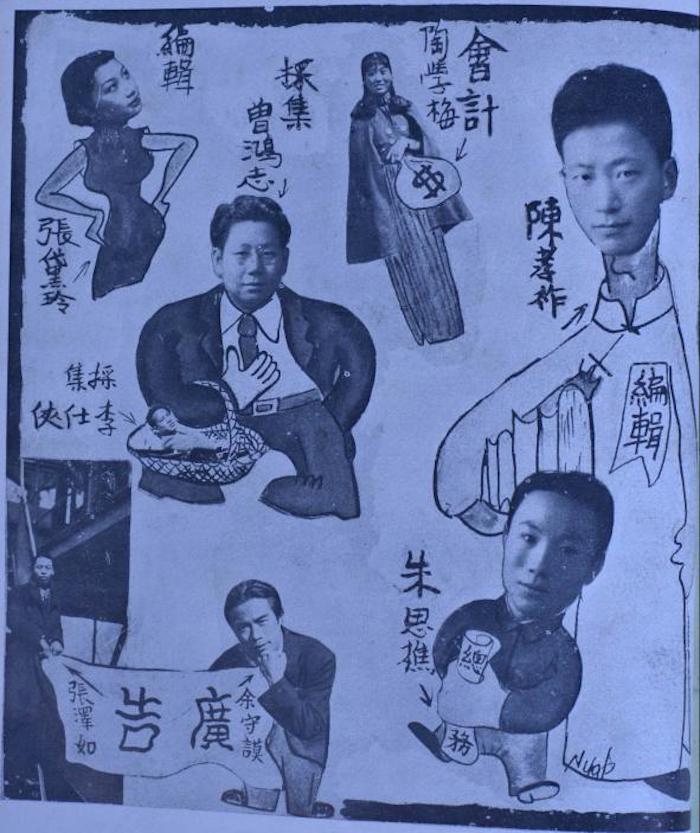 編輯
張黛玲
採集
曾鴻志
會計
陶學梅
陳孝祚
編輯
採集
李仕俠
朱思樵
總務
廣告
余守謨
張澤如